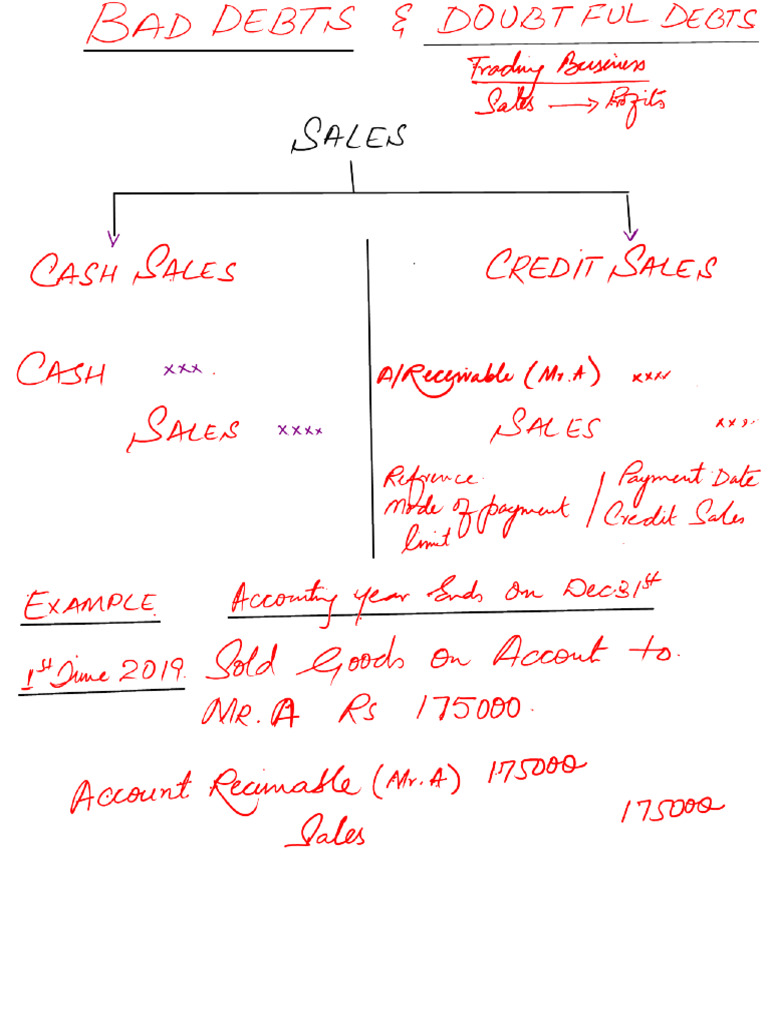 BAD DEBTS & DOUBTFUL DEBTS
Trading Business
Sales → Profits
SALES
CASH SALES
CREDIT SALES
CASH xxx.
SALES xxxx
A/Receivable (Mr.A) xxxx
SALES xxx.
Refrence
Mode of payment
limit
/ Payment Date
Credit Sales
EXAMPLE. Accounting year Ends on Dec:31st
1st June 2019. Sold Goods on Account to.
MR. A Rs 175000.
Account Receivable (Mr.A) 175000
Sales 175000